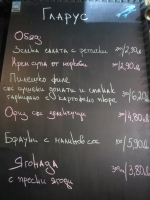 Гларус
Обяд
Зелена салата с репички 300/2,90лв
Крем супа от моркови 300/2,90лв
Пилешко филе
със сушени домати и спанак
гарнирано с картофено пюре 300/6,20лв
Ориз със зеленчуци 300/4,80лв
Брауни с малинов сос 100/5,90лв
Ягодада
с пресни ягоди 3,80лв